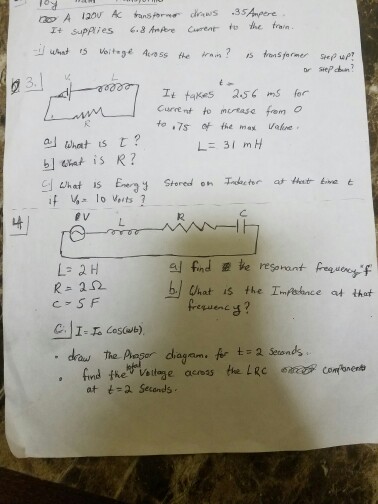 A 120V AC transformer draws .35 Ampere.
It supplies 6.8 Ampere current to the train.
i) what is Voltage Across the train? is transformer step up?
or step down?
3.
L
R
It takes t= 2.56 ms for
current to increase from 0
to .75 of the max value.
a) What is τ?
L= 31 mH
b) What is R?
c) What is Energy Stored on Inductor at that time t
if V₀= 10 Volts?
4
V L R C
L= 2H
R= 2Ω
C= 5F
a) find the resonant frequency "f"
b) What is the Impedance at that
frequency?
C. I= I₀ Cos(ωt)
• draw the Phasor diagram. for t=2 seconds.
• find the total Voltage across the LRC components
at t=2 Seconds.